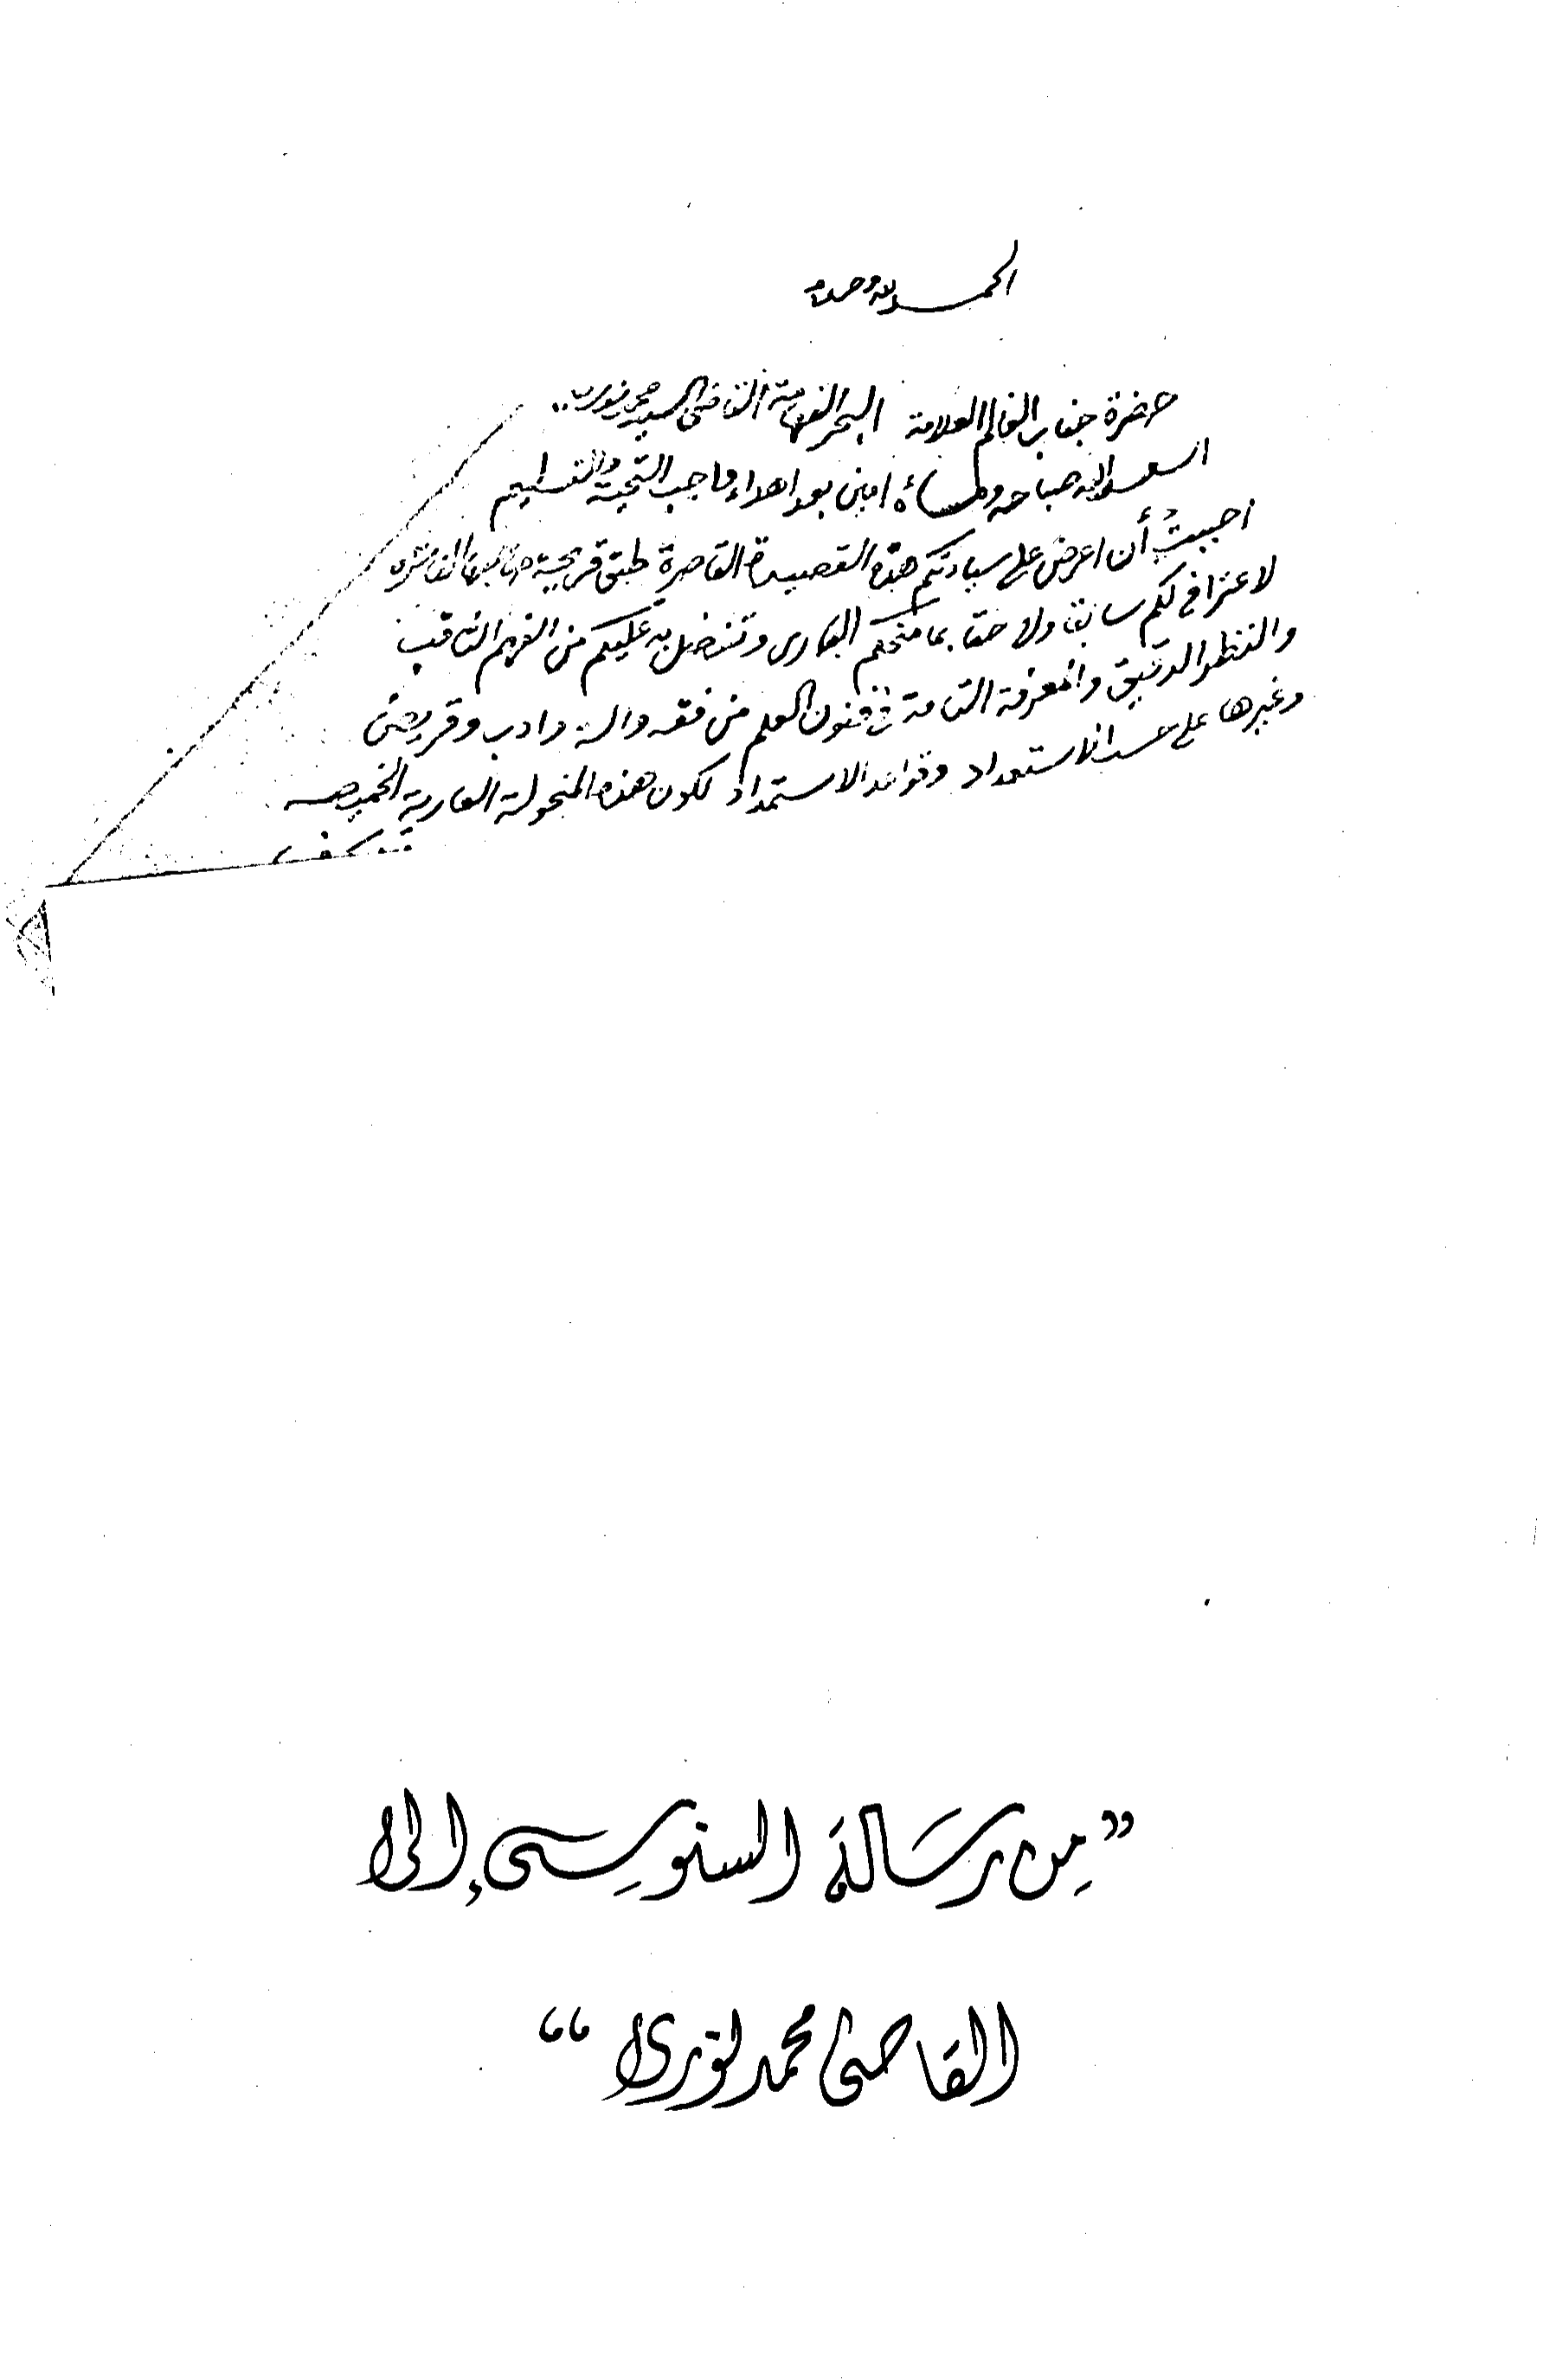 الحمد لله وحده
حضرة جناب العالم العلامة البحر الفهامة القاضي السيد محمد نوري..
اسعد الله صباحه ومساءه امين بعد اهداء واجب التحية والتسليم
احببت أن اعرض على سيادتكم هذه القصيدة القاصرة طبق قريحة صاحبها الفاترة
لاعترافي لكم سابقا ولاحقا بما منحكم الباري وتفضل به عليكم من الفهم الثاقب
والنظر الدقيق والمعرفة التامة في فنون العلم من فقه وآلة وادب وقريض
وغيرها على حسب الاستعداد وقواعد الاستمداد لكون هذه المنحولة العارية
”من رسَالة السنوسِى إلى
القَاضى محمد نورى“